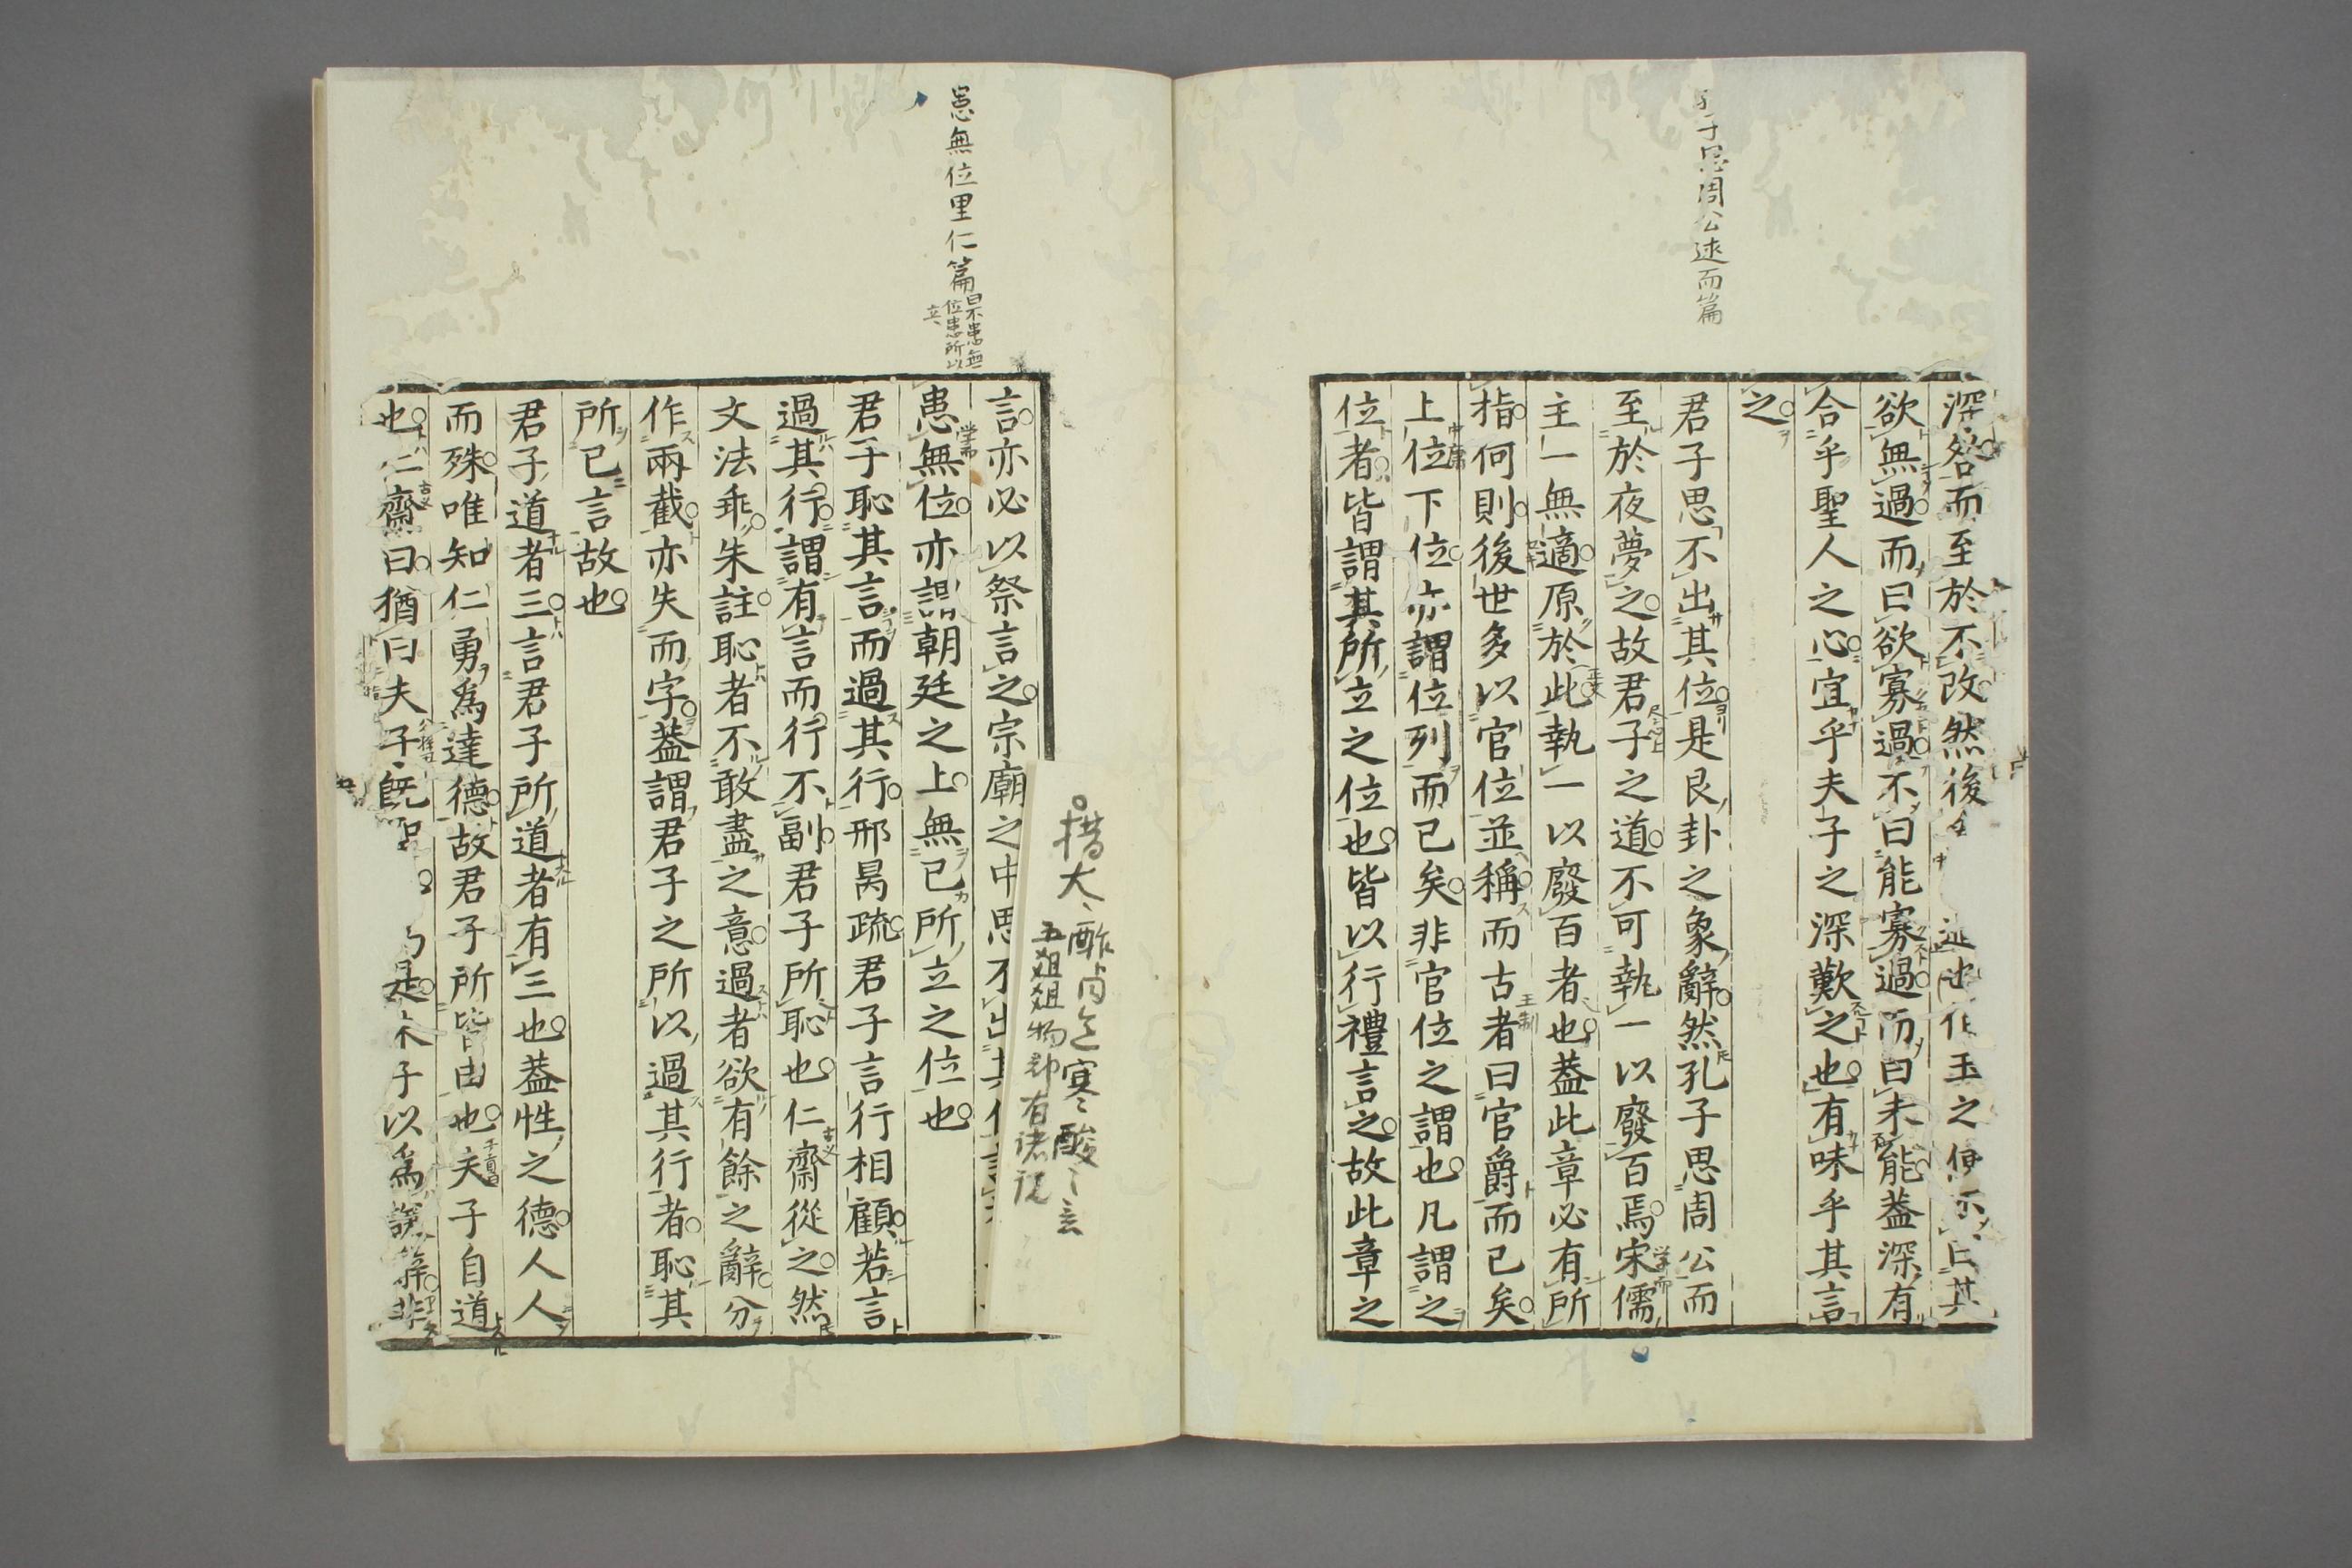 子思周公述而篇
深咎而至於不改然後
欲無過而曰欲寡過不曰能寡過而曰未能蓋深有
合乎聖人之心宜乎夫子之深歎之也有味乎其言
之
君子思不出其位是艮卦之象辭然孔子思周公而
至於夜夢之故君子之道不可執一以廢百焉宋儒
主一無適原於此執一以廢百者也蓋此章必有所
指何則後世多以官位並稱而古者曰官爵而已矣
上位下位亦謂位列而已矣非官位之謂也凡謂之
位者皆謂其所立之位也皆以行禮言之故此章之
患無位里仁篇
曰不患無
位患所以
立
措大酢
寒酸
五爼爼物
有
言亦必以祭言之宗廟之中思不出其位
患無位亦謂朝廷之上無已所立之位也
君子恥其言而過其行邢昺疏君子言行相顧若言
過其行謂有言而行不副君子所恥也仁齋從之然
文法乖朱註恥者不敢盡之意過者欲有餘之辭分
作兩截亦失而字蓋謂君子之所以過其行者恥其
所已言故也
君子道者三言君子所道者有三也蓋性之德人人
而殊唯知仁勇爲達德故君子所皆由也夫子自道
也仁齋曰猶曰夫子既是夫子以爲